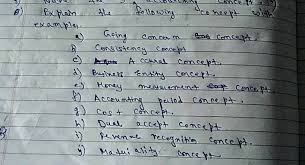 Explain the following concept with
example.
a) Going Concern concept.
b) Consistency concept
c) A ctual concept.
d) Business Entity concept.
e) Money measurement concept.
f) Accounting period concept.
g) Cost concept.
h) Dual accept concept
i) revenue recognition concept.
j) Matuiality concept.